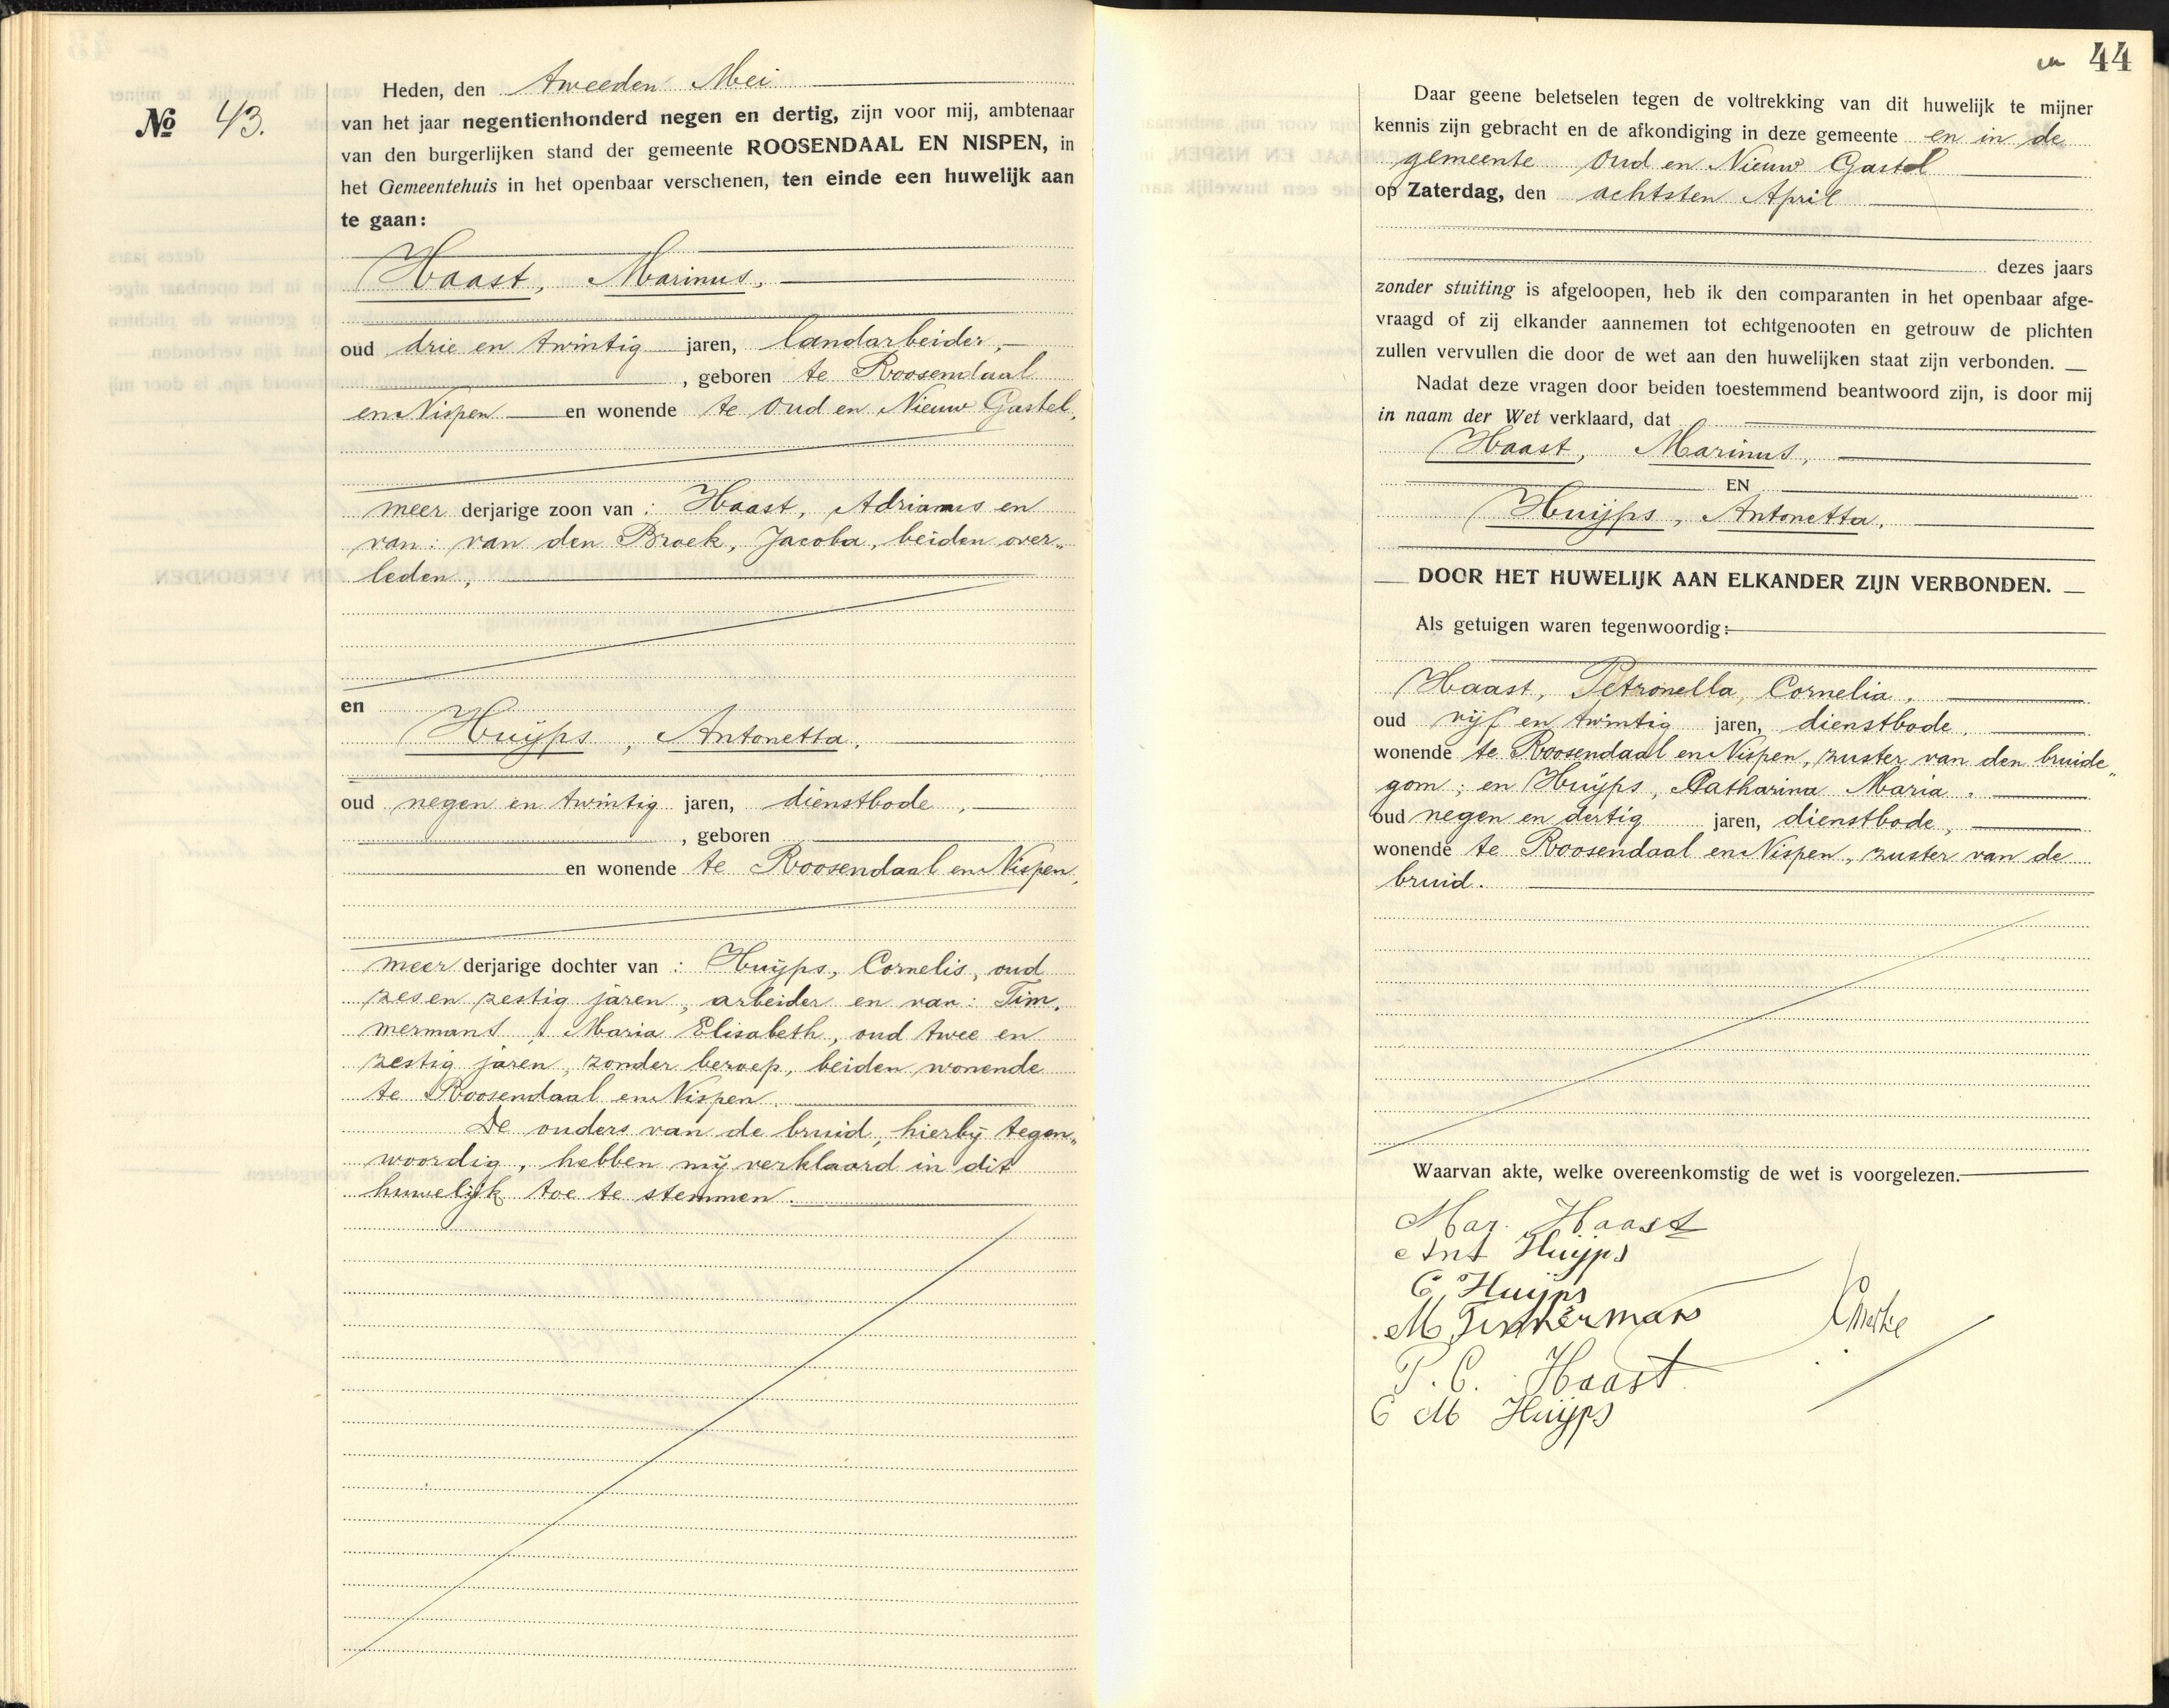 Nº 43.
Heden, den tweeden Mei
van het jaar negentienhonderd negen en dertig, zijn voor mij, ambtenaar
van den burgerlijken stand der gemeente ROOSENDAAL EN NISPEN, in
het Gemeentehuis in het openbaar verschenen, ten einde een huwelijk aan
te gaan:
Haast, Marinus,
oud drie en twintig jaren, landarbeider,
, geboren te Roosendaal
en Nispen en wonende te Oud en Nieuw Gastel,
meer derjarige zoon van : Haast, Adrianus en
van: van den Broek, Jacoba, beiden over„
leden,
en
Huijps, Antonetta,
oud negen en twintig jaren, dienstbode,
, geboren
en wonende te Roosendaal en Nispen,
meer derjarige dochter van : Huijps, Cornelis, oud
zes en zestig jaren, arbeider en van: Tim„
mermans, Maria Elisabeth, oud twee en
zestig jaren, zonder beroep, beiden wonende
te Roosendaal en Nispen.
De ouders van de bruid, hierbij tegen„
woordig, hebben mij verklaard in dit
huwelijk toe te stemmen.
44
Daar geene beletselen tegen de voltrekking van dit huwelijk te mijner
kennis zijn gebracht en de afkondiging in deze gemeente en in de
gemeente Oud en Nieuw Gastel
op Zaterdag, den achtsten April
dezes jaars
zonder stuiting is afgeloopen, heb ik den comparanten in het openbaar afge-
vraagd of zij elkander aannemen tot echtgenooten en getrouw de plichten
zullen vervullen die door de wet aan den huwelijken staat zijn verbonden.
Nadat deze vragen door beiden toestemmend beantwoord zijn, is door mij
in naam der Wet verklaard, dat
Haast, Marinus,
EN
Huijps, Antonetta,
DOOR HET HUWELIJK AAN ELKANDER ZIJN VERBONDEN.
Als getuigen waren tegenwoordig:
Haast, Petronella, Cornelia,
oud vijf en twintig jaren, dienstbode,
wonende te Roosendaal en Nispen, zuster van den bruide„
gom; en Huijps, Catharina Maria,
oud negen en dertig jaren, dienstbode,
wonende te Roosendaal en Nispen, zuster van de
bruid.
Waarvan akte, welke overeenkomstig de wet is voorgelezen.
Mar. Haast
Ant Huijps
C. Huijps
M Timmermans
P. C. Haast
C M Huijps